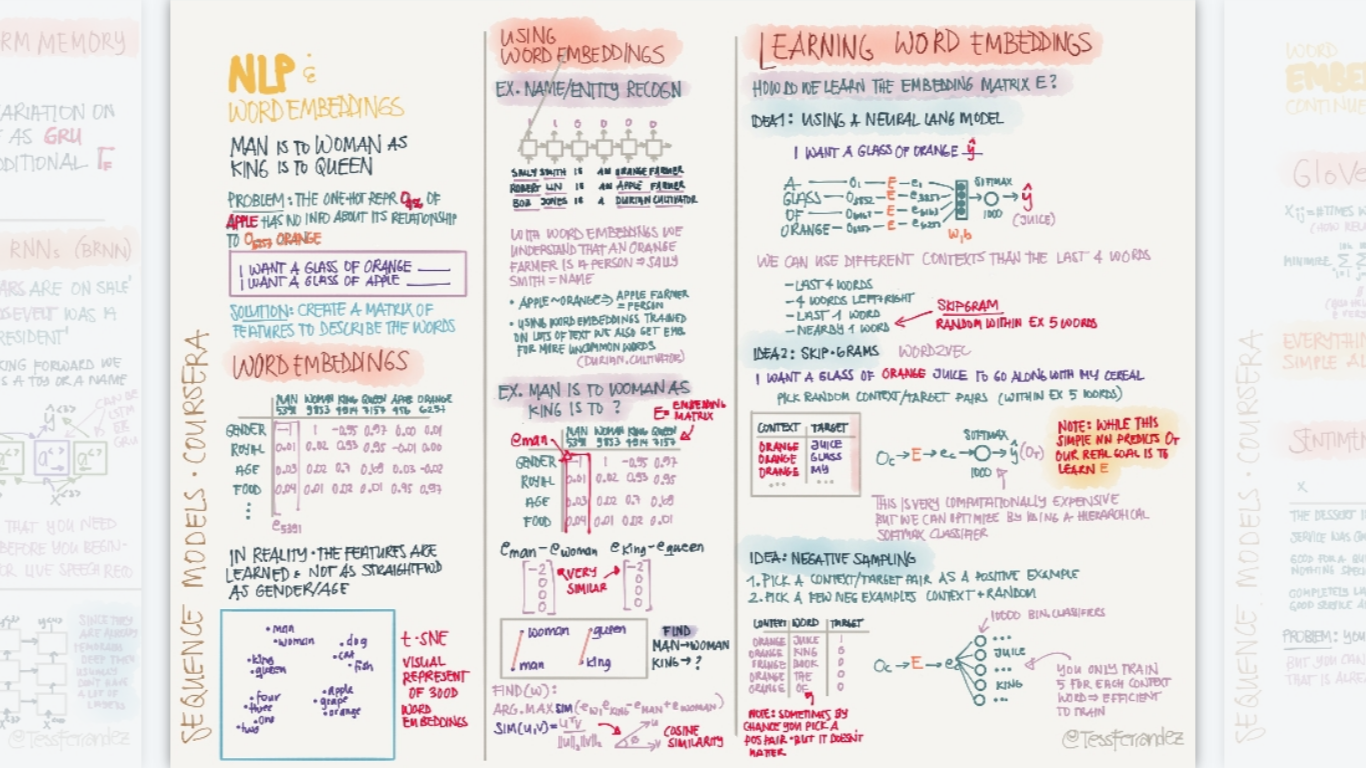 RM MEMORY
ARIATION ON
T AS GRU
DDITIONAL
RNNs (BRNN)
ARS ARE ON SALE'
SEVELT WAS A
RESIDENT'
KING FORWARD WE
S A TOY OR A NAME
THAT YOU NEED
BEFORE YOU BEGIN-
OR LIVE SPEECH RECO
@TessFerrandez
SEQUENCE MODELS · COURSERA
NLP &
WORD EMBEDDINGS
MAN IS TO WOMAN AS
KING IS TO QUEEN
PROBLEM: THE ONE-HOT REPR O456 OF
APPLE HAS NO INFO ABOUT ITS RELATIONSHIP
TO O6257 ORANGE
I WANT A GLASS OF ORANGE ____
I WANT A GLASS OF APPLE ____
SOLUTION: CREATE A MATRIX OF
FEATURES TO DESCRIBE THE WORDS
WORD EMBEDDINGS
MAN WOMAN KING QUEEN APPLE ORANGE
5391 9853 4914 7157 456 6257
GENDER -1 1 -0.95 0.97 0.00 0.01
ROYAL 0.01 0.02 0.93 0.95 -0.01 0.00
AGE 0.03 0.02 0.7 0.69 0.03 -0.02
FOOD 0.04 0.01 0.02 0.01 0.95 0.97
e5391
IN REALITY · THE FEATURES ARE
LEARNED & NOT AS STRAIGHTFWD
AS GENDER/AGE
man
woman
dog
cat
fish
king
queen
four
three
one
two
apple
grape
orange
t-SNE
VISUAL
REPRESENT
OF 300D
WORD
EMBEDDINGS
USING
WORD EMBEDDINGS
EX. NAME/ENTITY RECOGN
1 1 0 0 0 0
SALLY SMITH IS AN ORANGE FARMER
ROBERT LIN IS AN APPLE FARMER
BOB JONES IS A DURIAN CULTIVATOR
WITH WORD EMBEDDINGS WE
UNDERSTAND THAT AN ORANGE
FARMER IS A PERSON ⇒ SALLY
SMITH = NAME
• APPLE ~ ORANGE ⇒ APPLE FARMER
= PERSON
• USING WORD EMBEDDINGS TRAINED
ON LOTS OF TEXT WE ALSO GET EMB.
FOR MORE UNCOMMON WORDS
(DURIAN, CULTIVATOR)
EX. MAN IS TO WOMAN AS
KING IS TO ?
E = EMBEDDING
MATRIX
eman
MAN WOMAN KING QUEEN
5391 9853 4914 7157
GENDER -1 1 -0.95 0.97
ROYAL 0.01 0.02 0.93 0.95
AGE 0.03 0.02 0.7 0.69
FOOD 0.04 0.01 0.02 0.01
eman - ewoman eking - equeen
-2 -2
0 0
0 0
0 0
VERY
SIMILAR
woman queen
man king
FIND
MAN→WOMAN
KING→?
FIND(W):
ARG. MAX SIM(ew, eKING - eMAN + eWOMAN)
SIM(U,V) = UTV / ||U||2||V||2
COSINE
SIMILARITY
LEARNING WORD EMBEDDINGS
HOW DO WE LEARN THE EMBEDDING MATRIX E?
IDEA1: USING A NEURAL LANG MODEL
I WANT A GLASS OF ORANGE ŷ
A
GLASS
OF
ORANGE
E
W,b
SOFTMAX
1000
ŷ
(JUICE)
WE CAN USE DIFFERENT CONTEXTS THAN THE LAST 4 WORDS
- LAST 4 WORDS
- 4 WORDS LEFT+RIGHT
- LAST 1 WORD
- NEARBY 1 WORD
SKIPGRAM
RANDOM WITHIN EX 5 WORDS
IDEA2: SKIP-GRAMS WORD2VEC
I WANT A GLASS OF ORANGE JUICE TO GO ALONG WITH MY CEREAL
PICK RANDOM CONTEXT/TARGET PAIRS (WITHIN EX 5 WORDS)
CONTEXT TARGET
ORANGE JUICE
ORANGE GLASS
ORANGE MY
... ...
Oc → E → ec → ŷ
SOFTMAX
1000
NOTE: WHILE THIS
SIMPLE NN PREDICTS OT
OUR REAL GOAL IS TO
LEARN E
THIS IS VERY COMPUTATIONALLY EXPENSIVE
BUT WE CAN OPTIMIZE BY USING A HIERARCHICAL
SOFTMAX CLASSIFIER
IDEA: NEGATIVE SAMPLING
1. PICK A CONTEXT/TARGET PAIR AS A POSITIVE EXAMPLE
2. PICK A FEW NEG EXAMPLES CONTEXT + RANDOM
CONTEXT WORD TARGET
ORANGE JUICE 1
ORANGE KING 0
ORANGE BOOK 0
ORANGE THE 0
ORANGE OF 0
NOTE: SOMETIMES BY
CHANCE YOU PICK A
POS PAIR · BUT IT DOESN'T
MATTER
Oc → E → ec
10000 BIN. CLASSIFIERS
JUICE
KING
YOU ONLY TRAIN
5 FOR EACH CONTEXT
WORD ⇒ EFFICIENT
TO TRAIN
@TessFerrandez
SEQUENCE MODELS · COURSERA
WORD
EMBE
CONTINUE
GloVe
EVERYTHIN
SIMPLE AD
SENTIME
X
THE DESSERT
PROBLEM: YOU
BUT YOU CAN
THAT IS ALREA